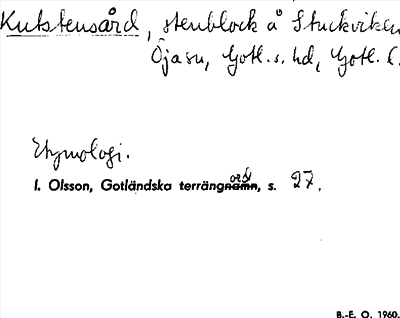 Kutstensård, stenblock å Stuckviken
Öja sn, Gotl. s. hd, Gotl. l.
Etymologi.
I. Olsson, Gotländska terrängnamn ord, s. 27.
B.-E. O. 1960.